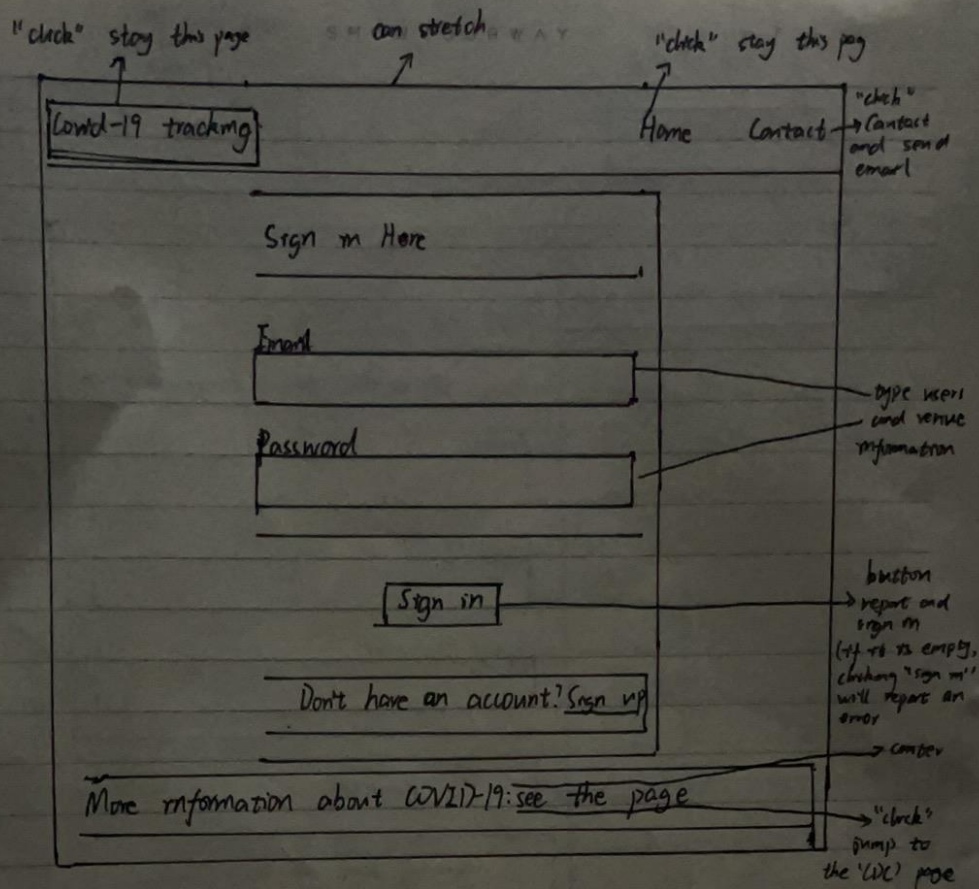 "click" stay this page
can stretch
"click" stay this pag
Covid-19 tracking
Home
Contact
"click"
Contact
and send
email
Sign in Here
Email
type users
and venue
information
Password
Sign in
button
report and
sign in
(if it is empty,
clicking "sign in"
will report an
error
Don't have an account? Sign up
center
More information about COVID-19: see the page
"click"
jump to
the 'CDC' page